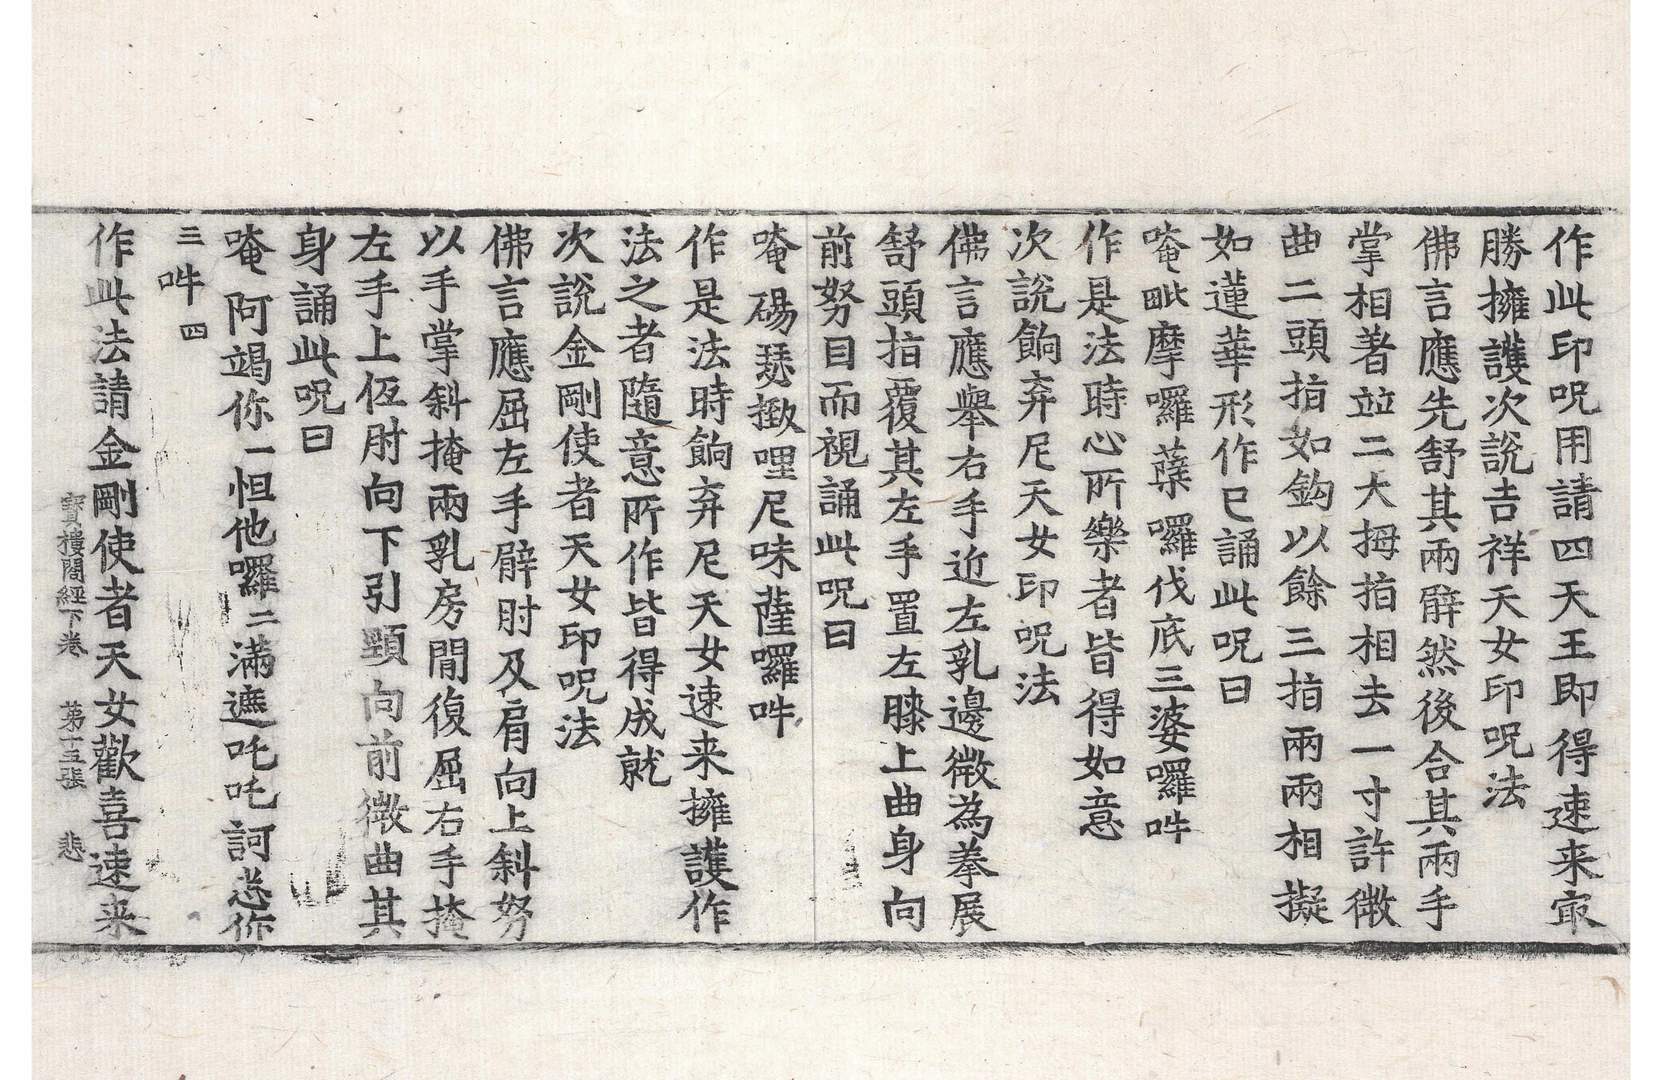 作此印呪用請四天王即得速来㝡
勝擁護次說吉祥天女印呪法
佛言應先舒其兩臂然後合其兩手
掌相著並二大拇指相去一寸許微
曲二頭指如鈎以餘三指兩兩相擬
如蓮華形作已誦此呪曰
唵毗摩囉蘖囉伐底三婆囉吽
作是法時心所樂者皆得如意
次說餉弃尼天女印呪法
佛言應舉右手近左乳邊微為拳展
舒頭指覆其左手置左膝上曲身向
前努目而視誦此呪曰
唵碭瑟撴哩尼味薩囉吽
作是法時餉弃尼天女速来擁護作
法之者隨意所作皆得成就
次說金剛使者天女印呪法
佛言應屈左手臂肘及肩向上斜努
以手掌斜掩兩乳房間復屈右手掩
左手上仾肘向下引頸向前微曲其
身誦此呪曰
唵阿竭你一怛他囉二滿遮吒吒訶悉你
三吽四
作此法請金剛使者天女歡喜速来
寳樓閣經下卷 第十五張 悲